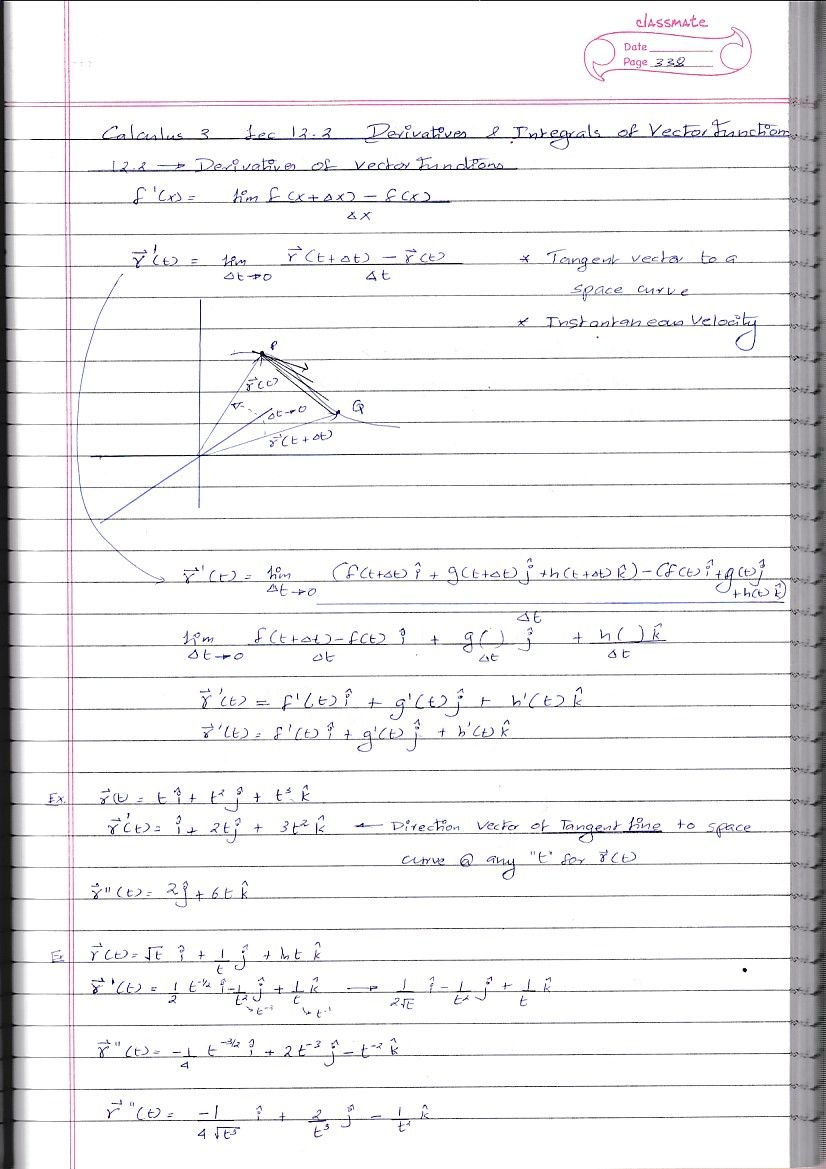 classmate
Date
Page 338
Calculus 3 Lec 12.2 Derivatives & Integrals of Vector Function
12.2 → Derivatives of vector functions
f'(x) = lim f(x+Δx) - f(x)
Δx
r⃗'(t) = lim r⃗(t+Δt) - r⃗(t) * Tangent vector to a
Δt→0 Δt space curve
* Instantaneous Velocity
P
r⃗(t)
Δt→0 Q
r⃗(t+Δt)
r⃗'(t) = lim (f(t+Δt) î + g(t+Δt) ĵ + h(t+Δt) k̂) - (f(t) î + g(t) ĵ
Δt→0 + h(t) k̂)
Δt
lim f(t+Δt) - f(t) î + g( ) ĵ + h( ) k̂
Δt→0 Δt Δt Δt
r⃗'(t) = f'(t) î + g'(t) ĵ + h'(t) k̂
r⃗'(t) = f'(t) î + g'(t) ĵ + h'(t) k̂
Ex. r⃗(t = t î + t² ĵ + t³ k̂
r⃗'(t) = î + 2t ĵ + 3t² k̂ ← Direction Vector of Tangent line to space
curve @ any "t" for r⃗(t)
r⃗''(t) = 2 ĵ + 6t k̂
Ex r⃗(t) = √t î + 1/t ĵ + ln t k̂
r⃗'(t) = 1/2 t^-1/2 î - 1/t² ĵ + 1/t k̂ → 1/2√t î - 1/t² ĵ + 1/t k̂
↳ t⁻² ↳ t⁻¹
r⃗''(t) = -1/4 t^-3/2 î + 2t⁻³ ĵ - t⁻² k̂
r⃗''(t) = -1/4√t³ î + 2/t³ ĵ - 1/t² k̂